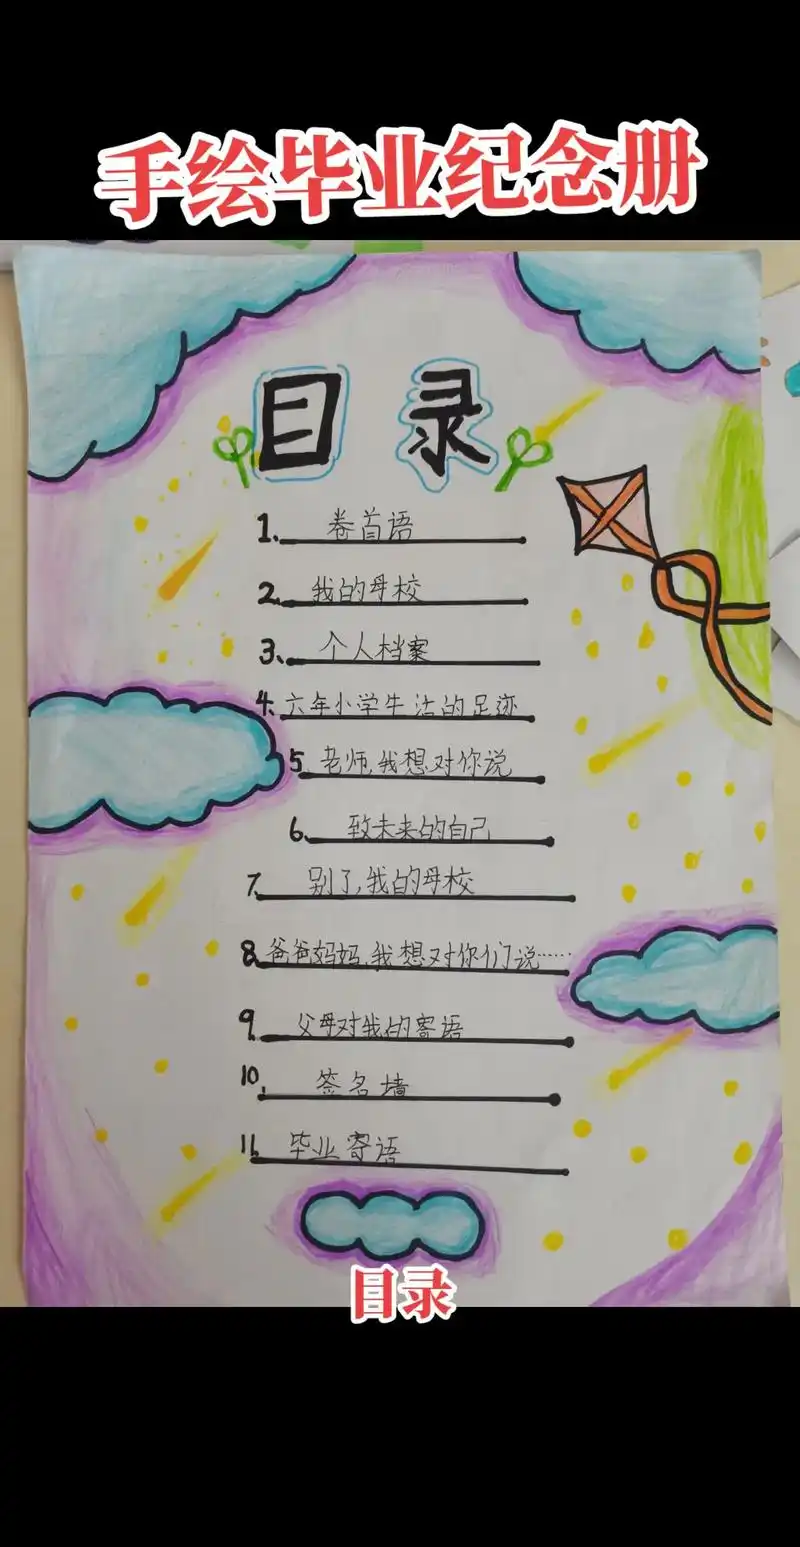 手绘毕业纪念册
目录
1、卷首语
2、我的母校
3、个人档案
4、六年小学生活的足迹
5、老师,我想对你说
6、致未来的自己
7、别了,我的母校
8、爸爸妈妈,我想对你们说……
9、父母对我的寄语
10、签名墙
11、毕业寄语
目录